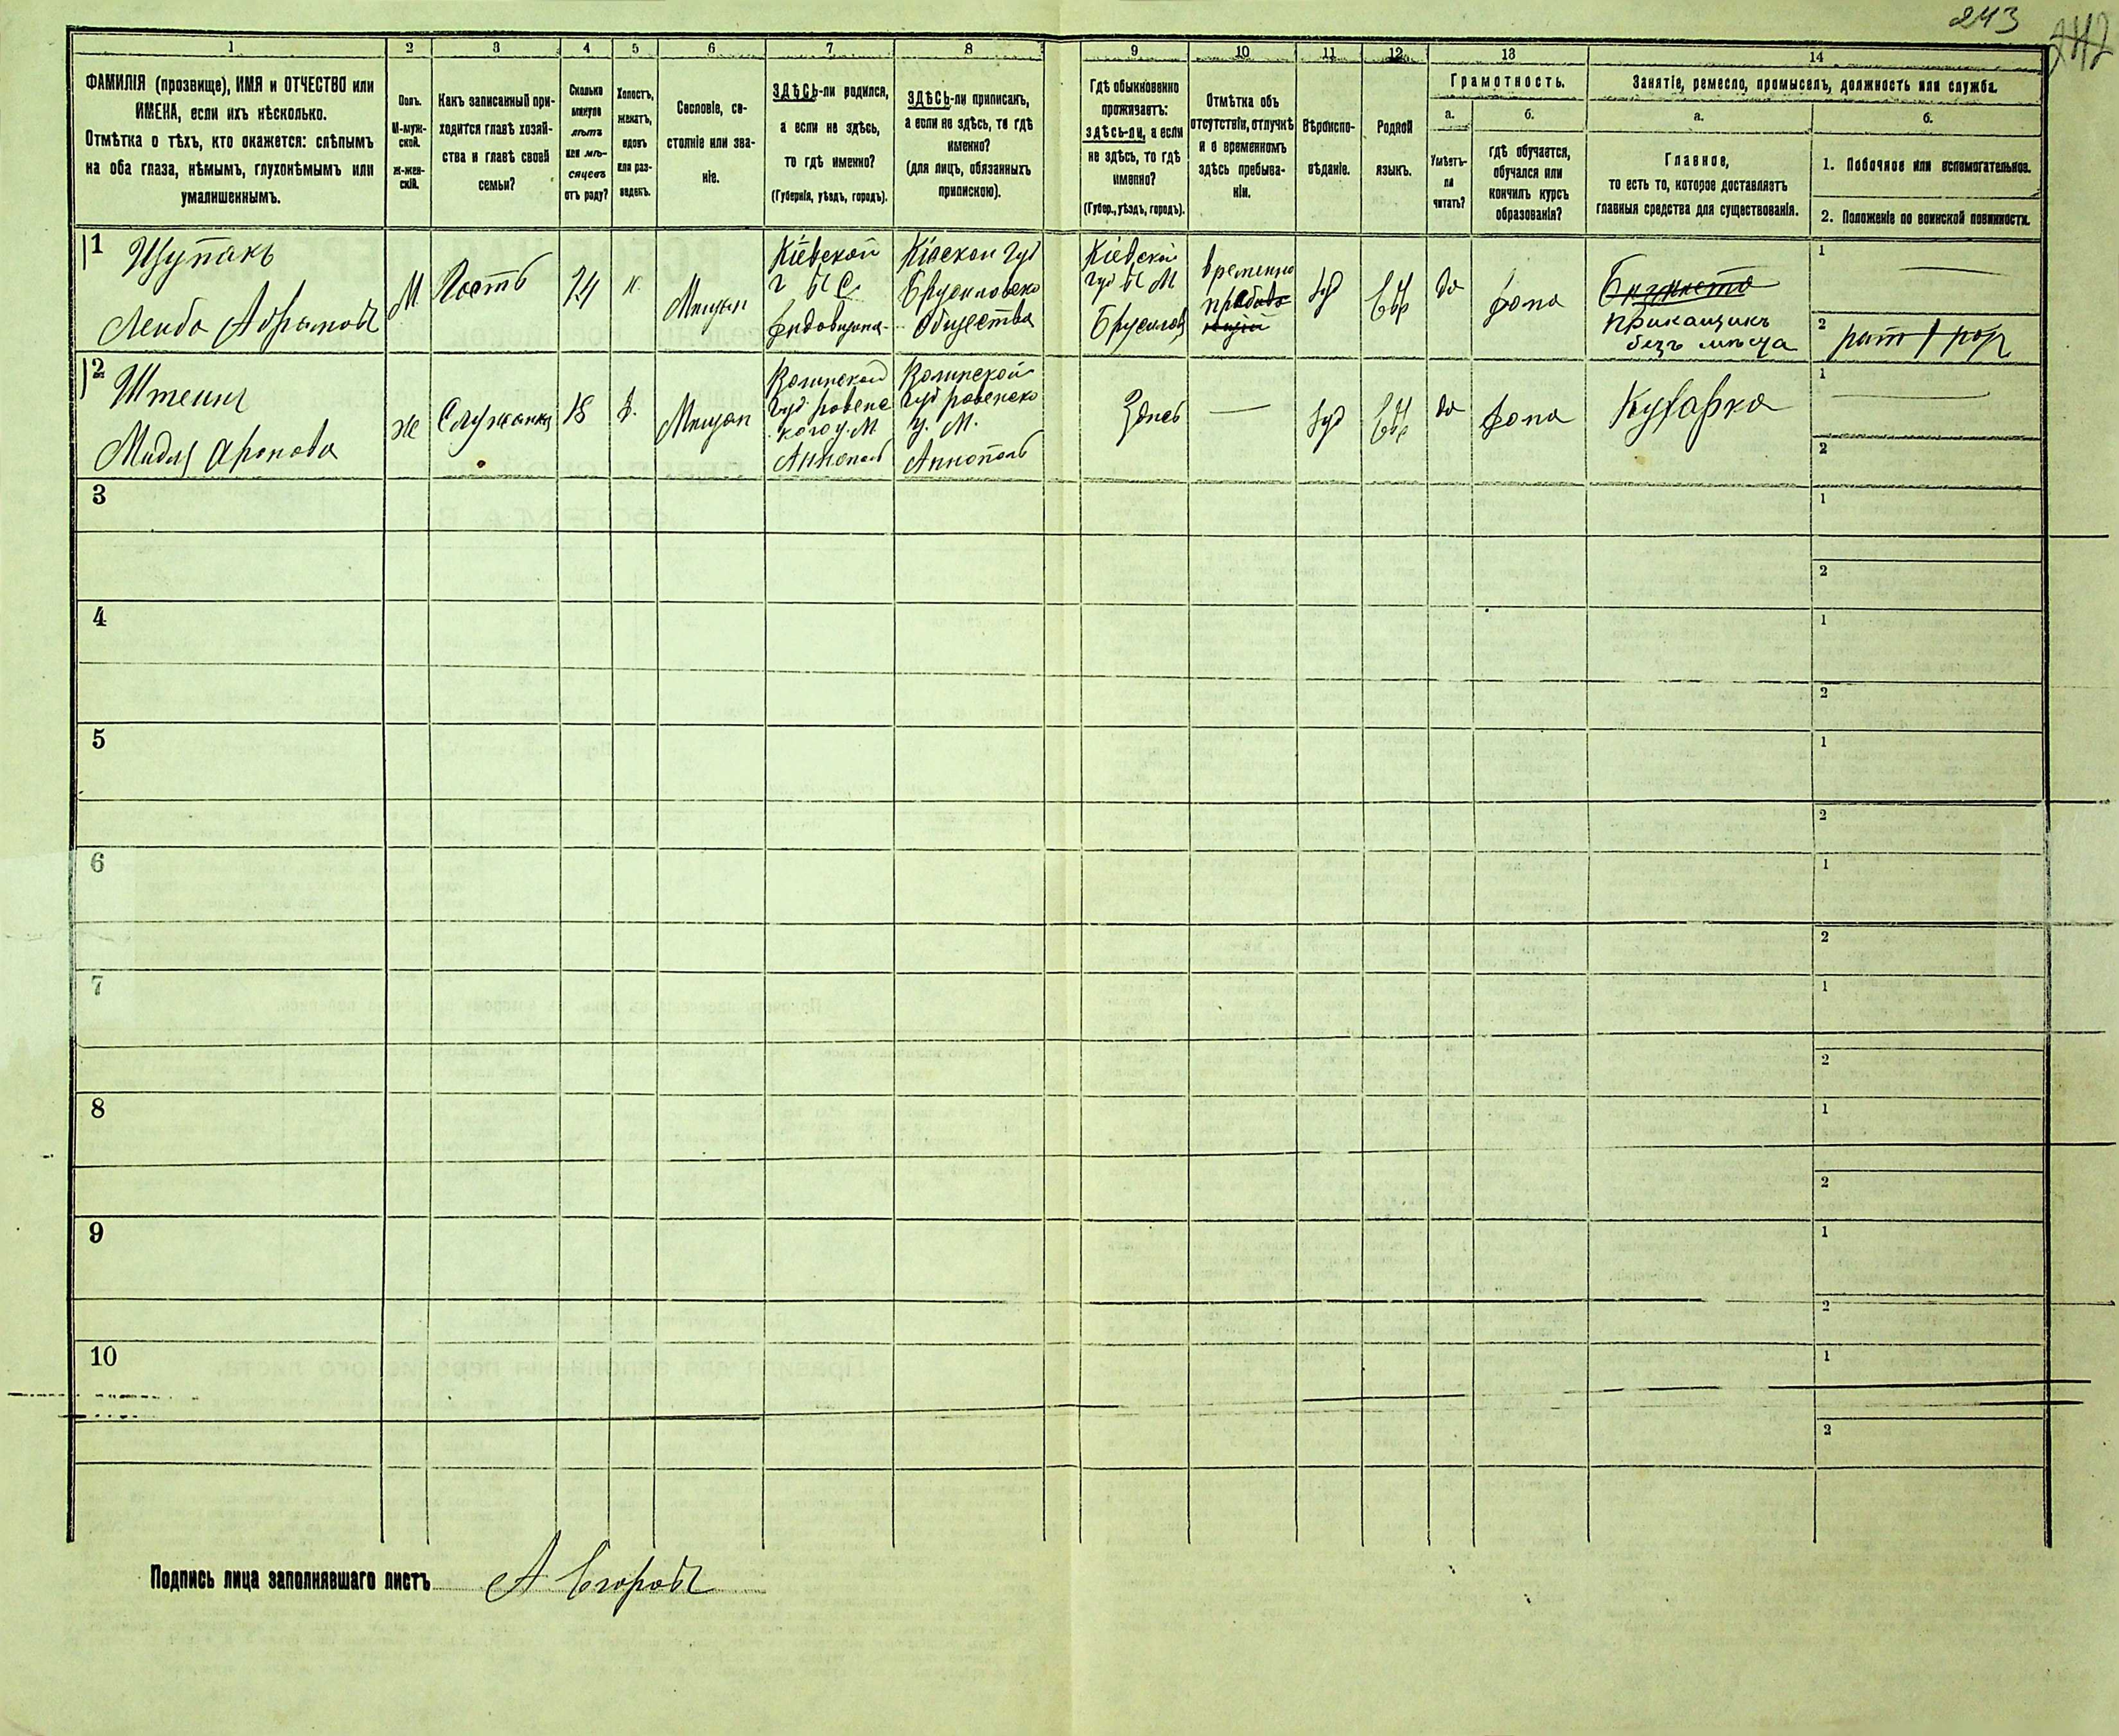 243
242
1 2 3 4 5 6 7 8 9 10 11 12 13 14
ФАМИЛІЯ (прозвище), ИМЯ и ОТЧЕСТВО или
ИМЕНА, если ихъ нѣсколько.
Отмѣтка о тѣхъ, кто окажется: слѣпымъ
на оба глаза, нѣмымъ, глухонѣмымъ или
умалишеннымъ.
Полъ.
М-муж-
ской.
Ж-жен-
скій.
Какъ записанный при-
ходится главѣ хозяй-
ства и главѣ своей
семьи?
Сколько
минуло
лѣтъ
или мѣ-
сяцевъ
отъ роду?
Холостъ,
женатъ,
вдовъ
или раз-
веденъ.
Сословіе, со-
стояніе или зва-
ніе.
ЗДѢСЬ-ли родился,
а если не здѣсь,
то гдѣ именно?
(Губернія, уѣздъ, городъ).
ЗДѢСЬ-ли приписанъ,
а если не здѣсь, то гдѣ
именно?
(для лицъ, обязанныхъ
припискою).
Гдѣ обыкновенно
проживаетъ:
здѣсь-ли, а если
не здѣсь, то гдѣ
именно?
(Губер., уѣздъ, городъ).
Отмѣтка объ
отсутствіи, отлучкѣ
и о временномъ
здѣсь пребыва-
ніи.
Вѣроиспо-
вѣданіе.
Родной
языкъ.
Грамотность.
а.
Умѣетъ-
ли
читать?
б.
гдѣ обучается,
обучался или
кончилъ курсъ
образованія?
Занятіе, ремесло, промыселъ, должность или служба.
а.
Главное,
то есть то, которое доставляетъ
главныя средства для существованія.
б.
1. Побочное или вспомогательное.
2. Положеніе по воинской повинности.
1
Щупакъ
Лейба Абрамовъ
М
Гость
24
х.
Мещан
Кіевской
г
Кіевской Губ
Брусиловско
Общества
Кіевской
губ М
Брусилов
временно
Іуд
Евр
да
дома
прикащикъ
безъ мѣста
1
2
2
Штеинъ
Мидля Аронова
ж
Служанка
18
д.
Мещан
Волинской
губ ровенс
кого у М
Аннополь
Волинской
губ ровенско
у. М.
Аннополь
Здесь
Іуд
Евр
да
дома
Кухарка
1
2
3
1
2
4
1
2
5
1
2
6
1
2
7
1
2
8
1
2
9
1
2
10
1
2
Подпись лица заполнявшаго листъ А Егоровъ